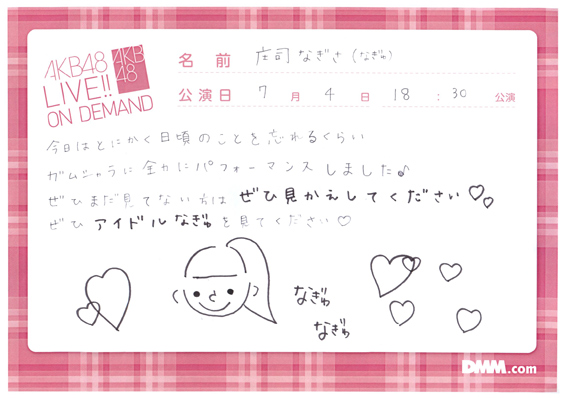 AKB48
LIVE!!
ON DEMAND
AKB
48
名前 庄司なぎさ(なぎゅ)
公演日 7月4日 18:30 公演
今日はとにかく日頃のことを忘れるくらい
ガムシャラに全力にパフォーマンスしました♪
ぜひまだ見てない方はぜひ見かえしてください♡♡
ぜひアイドルなぎゅを見てください♡
なぎゅ
なぎゅ
DMM.com